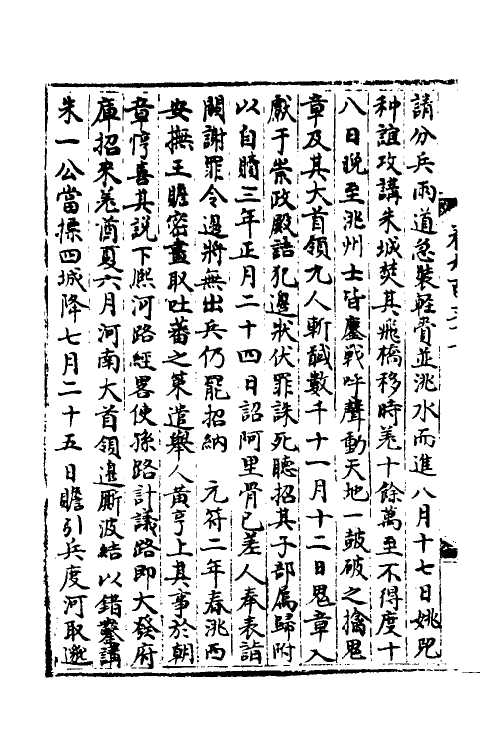 請分兵兩道急裝輕賫並洮水而進八月十七日姚兕
种誼攻講朱城焚其飛橋移時羗十餘萬至不得度十
八日晚至洮州士皆鏖戰呼聲動天地一鼓破之擒鬼
章及其大首領九人斬馘數千十一月十二日鬼章入
獻于崇政殿詰犯邊狀伏罪誅死聽招其子部属歸附
以自贖三年正月二十四日詔阿里骨已差人奉表詣
闕謝罪令邊將無出兵仍罷招納 元符二年春洮西
安撫王瞻密畫取吐蕃之策遣舉人黃亨上其事於朝
章惇喜其說下熈河路經畧使孫路計議路即大發府
庫招来羗酋夏六月河南大首領邊厮波結以錯鑿講
朱一公當摽四城降七月二十五日瞻引兵度河取邈